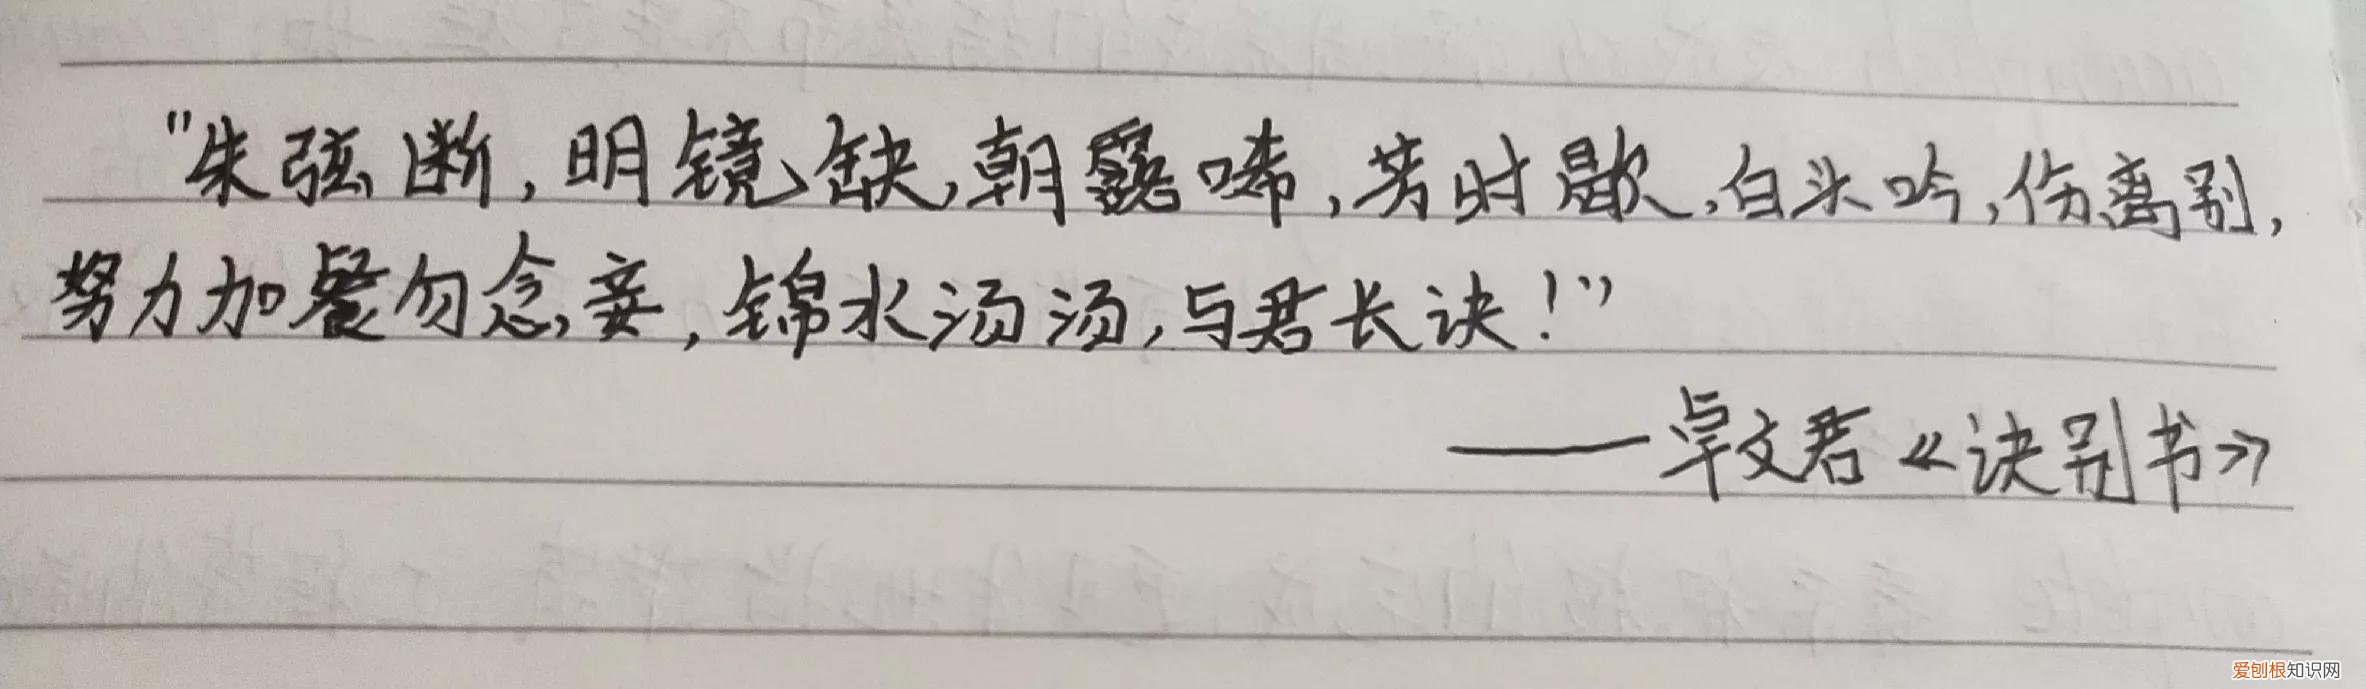 "朱弦断,明镜缺,朝露唏,芳时歇,白头吟,伤离别,
努力加餐勿念妾,锦水汤汤,与君长诀!"
——卓文君《诀别书》
爱刨根知识网